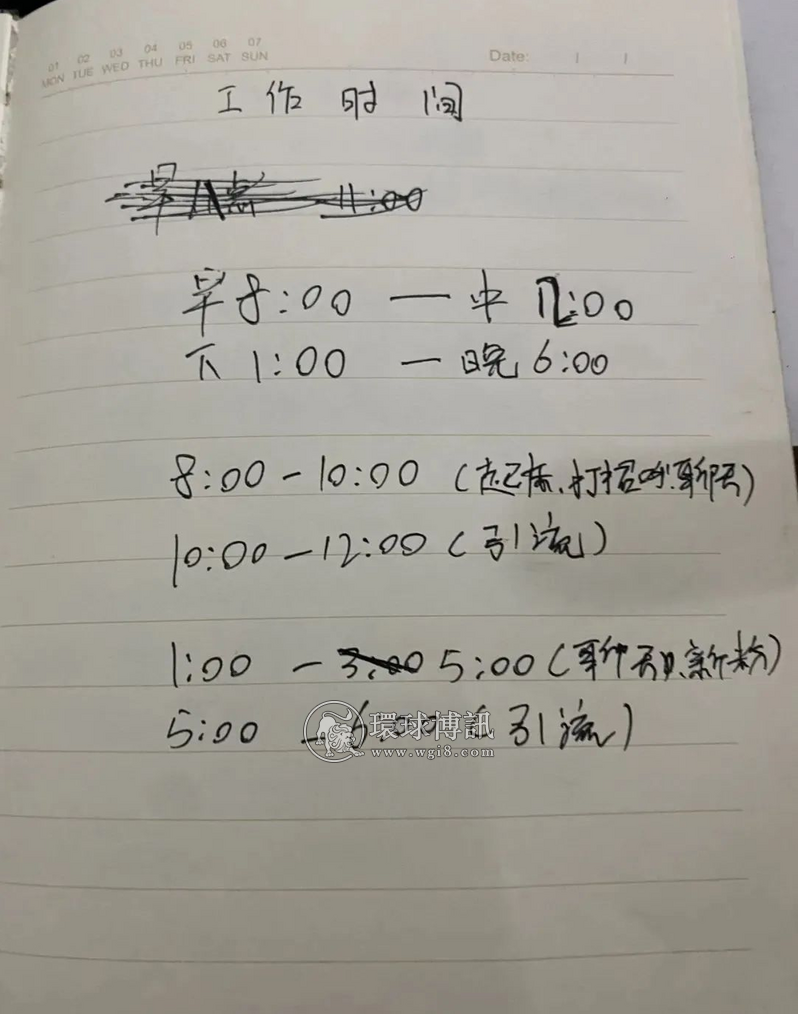 01 02 03 04 05 06 07
MON TUE WED THU FRI SAT SUN
Date: / /
工作时间
早8:00 — 中12:00
下1:00 — 晚6:00
8:00-10:00(起床、打招呼、聊天)
10:00-12:00(引流)
1:00 - 5:00(聊天、新粉)
5:00 - 6:00(引流)
環球博訊
www.wgi8.com